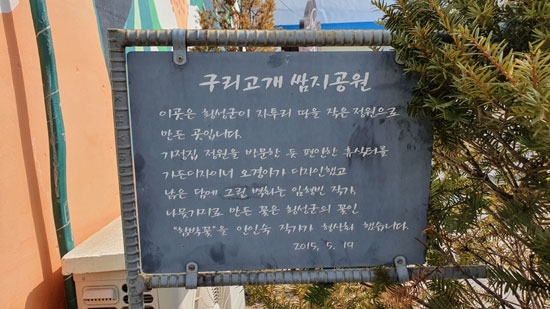 구리고개 쌈지공원
이곳은 횡성군이 자투리 땅을 작은 정원으로
만든 곳입니다.
가정집 정원을 방문한 듯 편안한 휴식터를
가든디자이너 오경아가 디자인했고
낡은 담에 그린 벽화는 임형빈 작가,
나뭇가지로 만든 꽃은 횡성군의 꽃인
"함박꽃"을 안인숙 작가가 형상화 했습니다.
2015. 5. 19